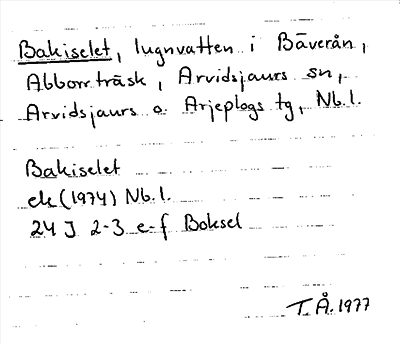 Bakiselet, lugnvatten i Bäverån,
Abborrträsk, Arvidsjaurs sn,
Arvidsjaurs o. Arjeplogs tg, Nb.l.
Bakiselet
ek (1974) Nb.l.
24 J 2-3 e-f Boksel
T.Å. 1977